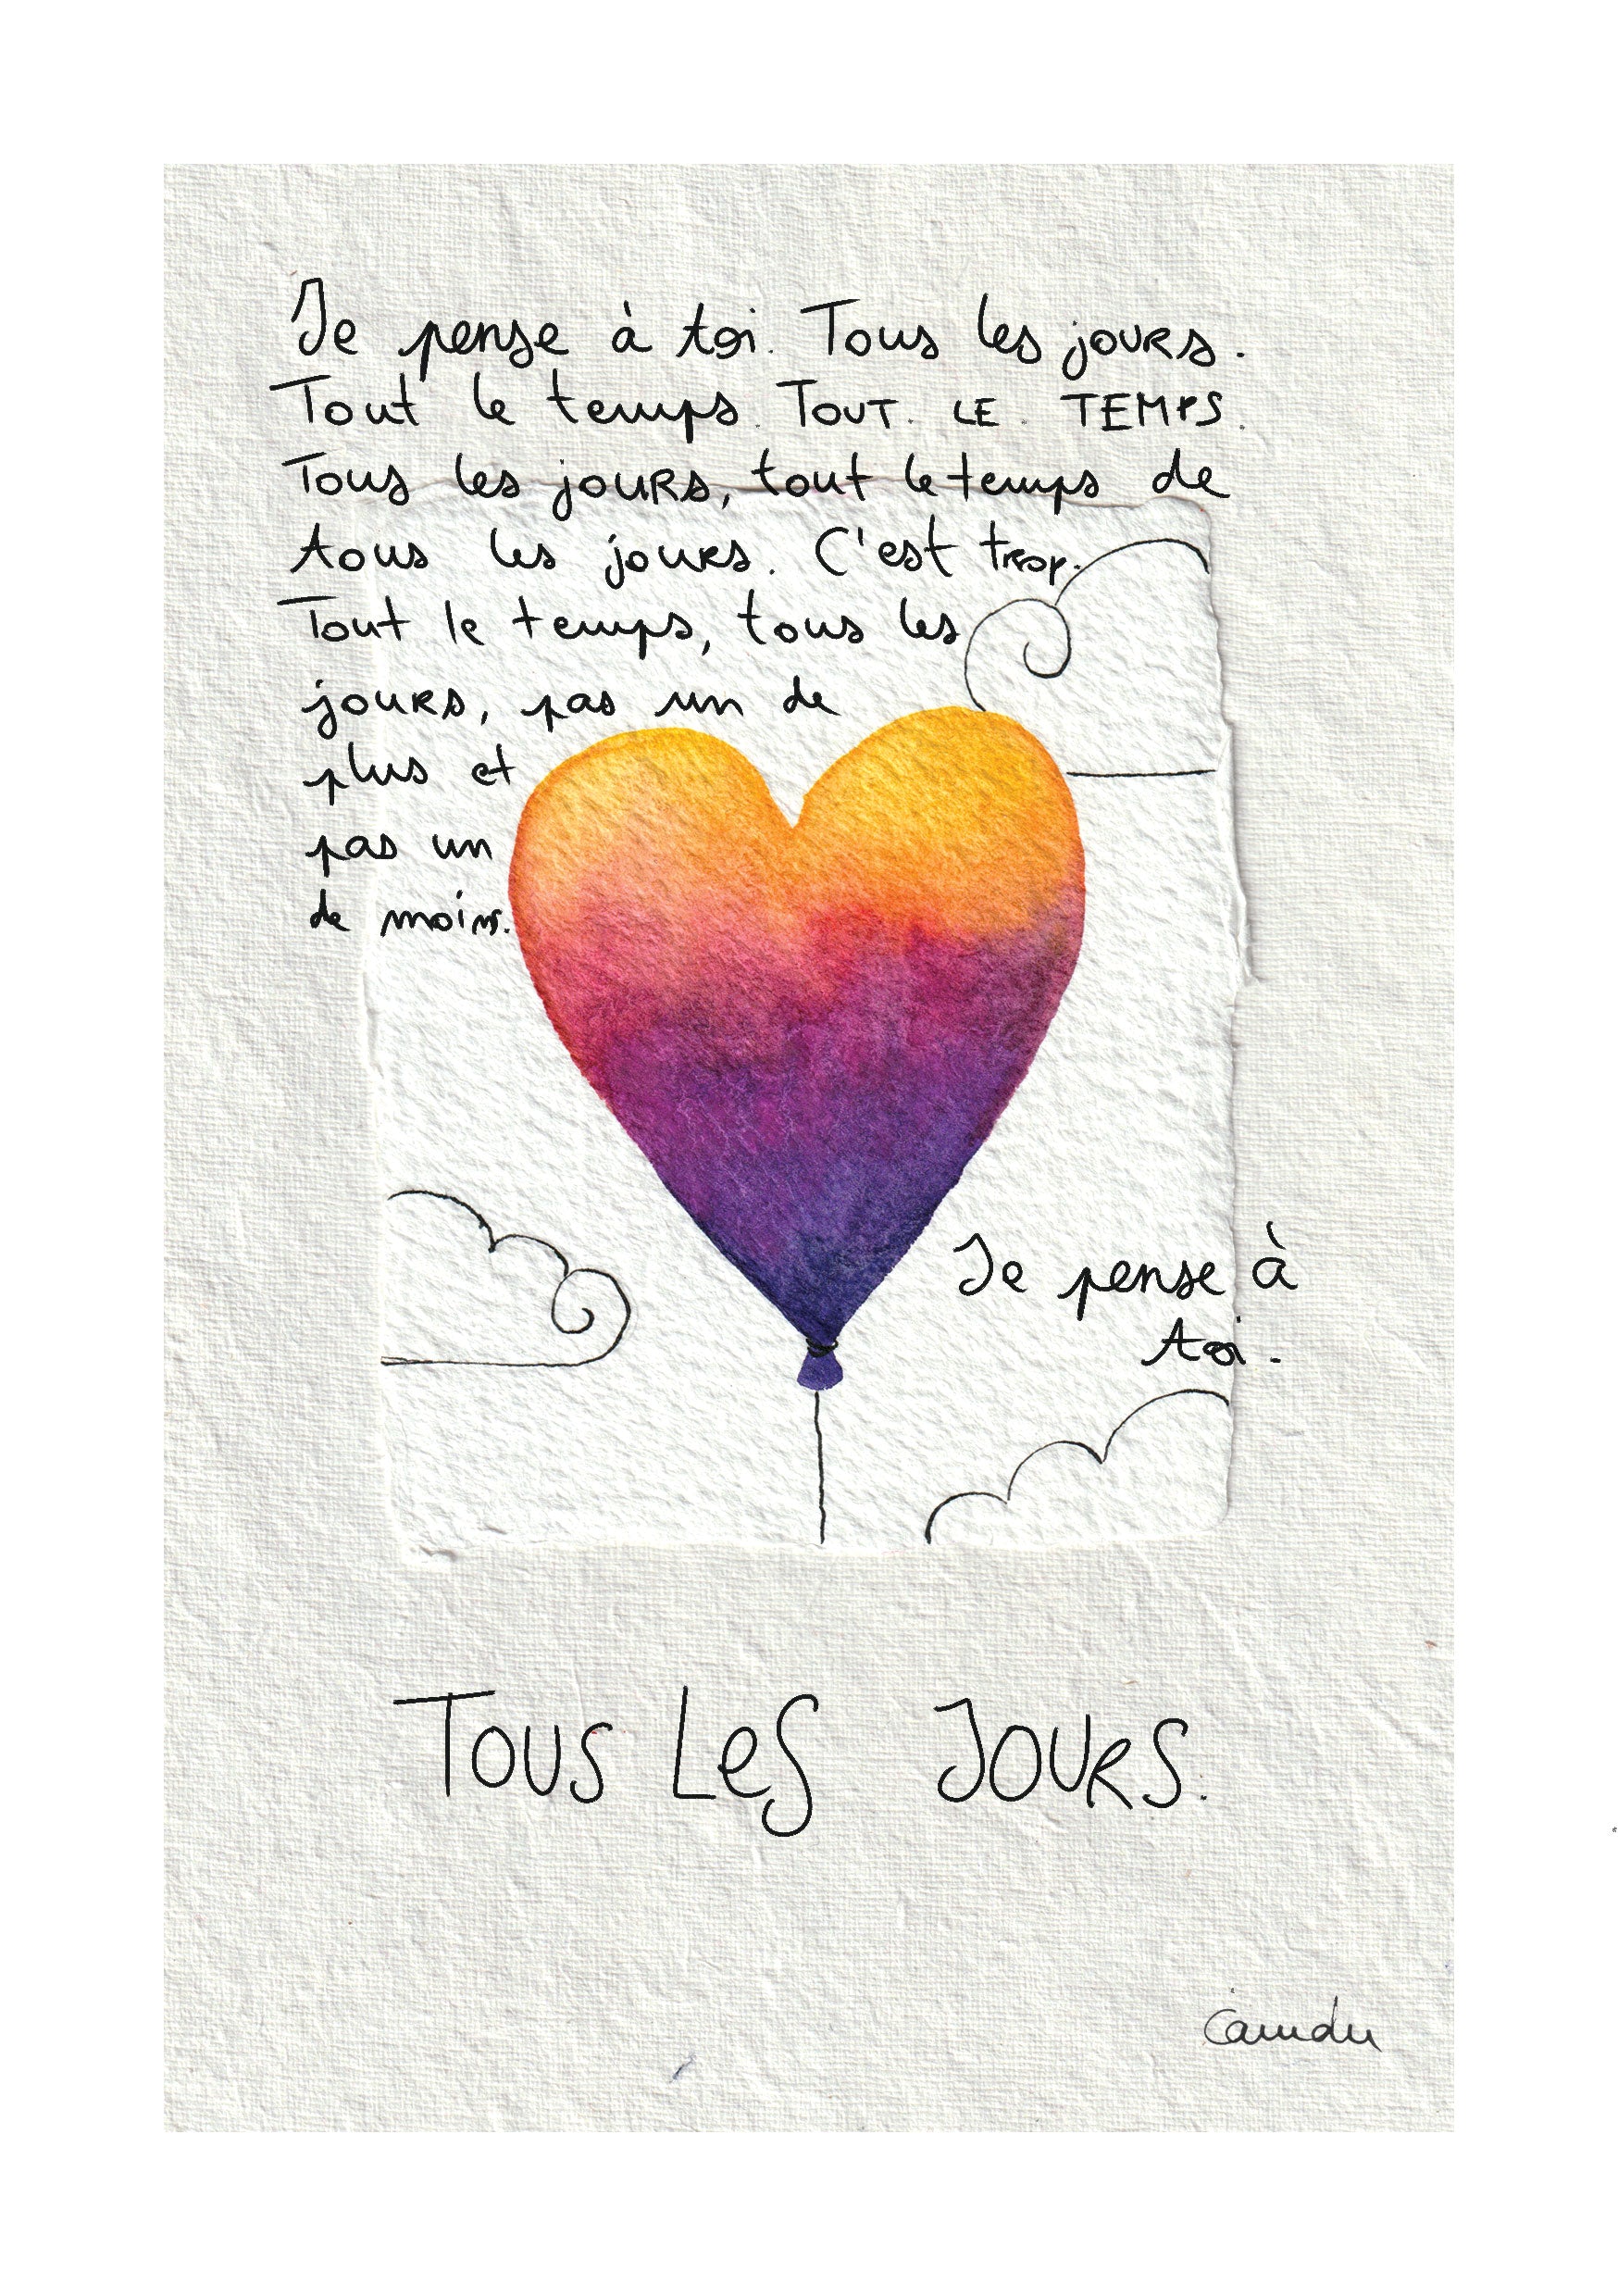 Je pense à toi. Tous les jours.
Tout le temps. TOUT. LE. TEMPS.
Tous les jours, tout le temps de
tous les jours. C'est trop.
Tout le temps, tous les
jours, pas un de
plus et
pas un
de moins.
Je pense à
toi.
TOUS LeS JOURS.